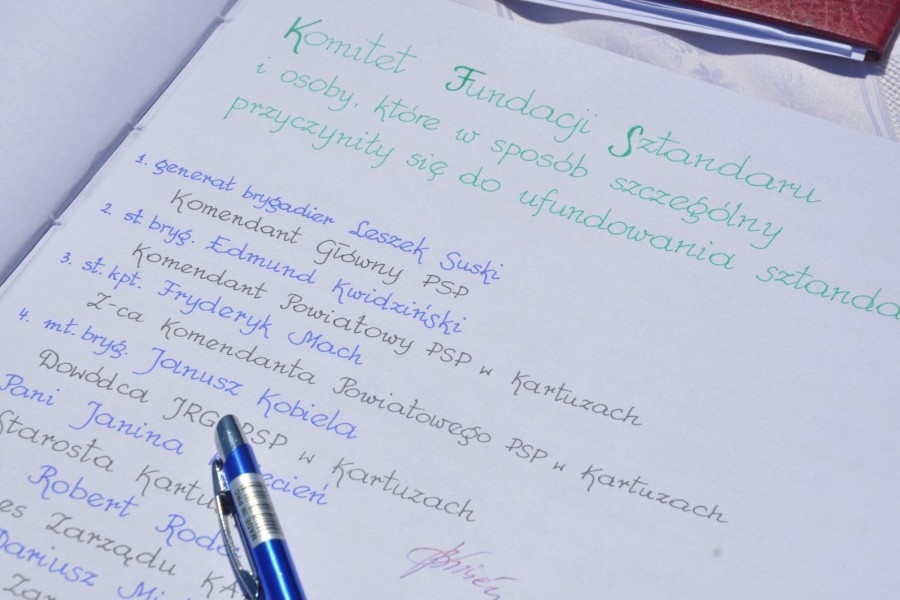 Komitet Fundacji Sztandaru
i osoby, które w sposób szczególny
przyczyniły się do ufundowania sztanda
1. generał brygadier Leszek Suski
Komendant Główny PSP
2. st. bryg. Edmund Kwidziński
Komendant Powiatowy PSP w Kartuzach
3. st. kpt. Fryderyk Mach
Z-ca Komendanta Powiatowego PSP w Kartuzach
4. mł. bryg. Janusz Kobiela
Dowódca JRG PSP w Kartuzach
Pani Janina
Starosta
Robert
Zarządu
Dariusz